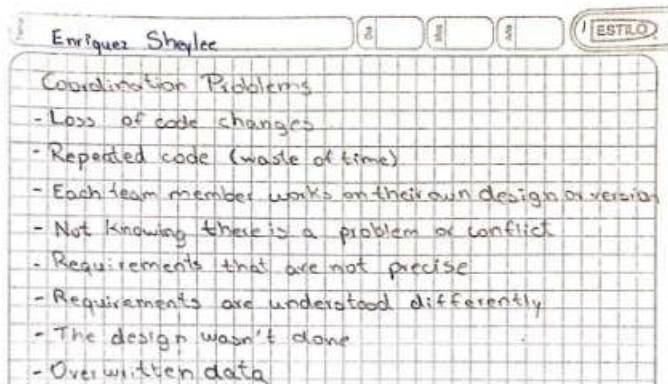 Enriquez Sheylee
Día
Mes
Año
ESTILO
Coordination Problems
- Loss of code changes
- Repeated code (waste of time)
- Each team member works on their own design or version
- Not knowing there is a problem or conflict
- Requirements that are not precise
- Requirements are understood differently
- The design wasn't done
- Overwritten data